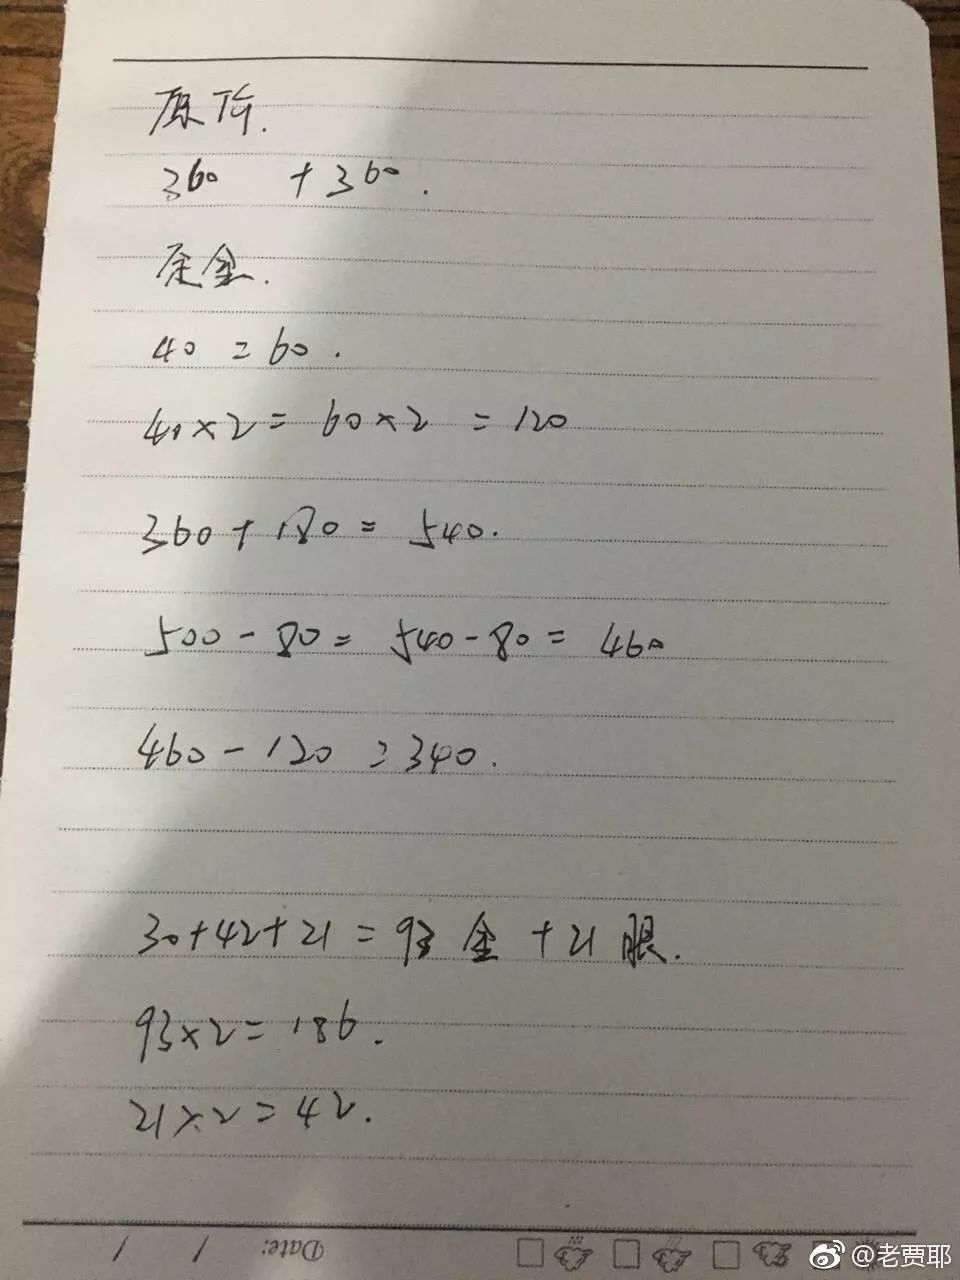 原价.
360 +360.
定金.
40 = 60.
40×2= 60×2 = 120
360+180= 540.
500-80= 540-80= 460
460-120=340.
30+42+21=93金+21眼.
93×2=186.
21×2=42.
Date: / /
@老贾耶